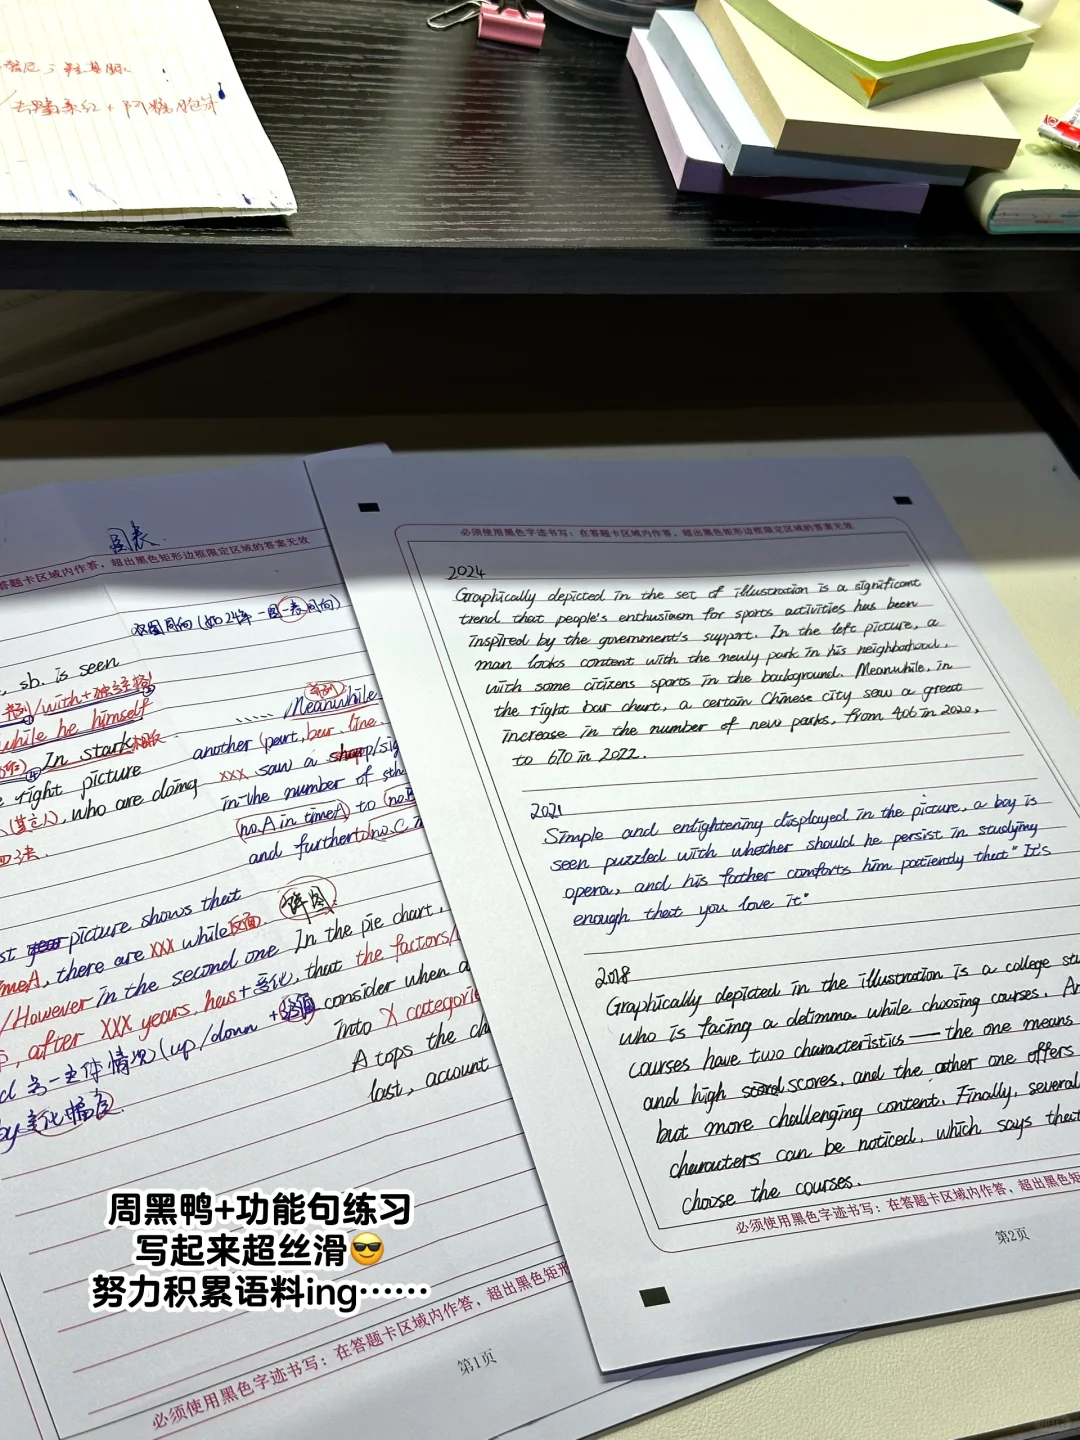 图表
答题卡区域内作答，超出黑色矩形边框限定区域的答案无效
双图同向(如24年一图一表同向)
, sb. is seen
/with+独立主格
while he himself
In stark
right picture
, who are doing
Meanwhile.
another (part, bar. line.
xxx saw a sharp/sig
in the number of sth
(no.A in timeA) to (no.B
and further to no.C i
st picture shows that
meA, there are xxx while反面.
饼图
/However in the second one
In the pie chart,
, after xxx years, has+变化, that the factors/
另一主体情况(up/down +
consider when a
by变化幅度.
into X categorie
A tops the ch
last, account
第1页
必须使用黑色字迹书写：在答题卡区域内作答，超出黑色矩形
必须使用黑色字迹书写：在答题卡区域内作答，超出黑色矩形边框限定区域的答案无效
2024
Graphically depicted in the set of illustration is a significant
trend that people's enthusiasm for sports activities has been
inspired by the government's support. In the left picture, a
man looks content with the newly park in his neighborhood,
with some citizens sports in the background. Meanwhile, in
the right bar chart, a certain Chinese city saw a great
increase in the number of new parks, from 406 in 2020,
to 670 in 2022.
2021
Simple and enlightening displayed in the picture, a boy is
seen puzzled with whether should he persist in studying
opera, and his father comforts him patiently that "It's
enough that you love it"
2018
Graphically depicted in the illustration is a college stu
who is facing a delimma while choosing courses. An
courses have two characteristics — the one means
and high scores, and the other one offers
but more challenging content. Finally, several
characters can be noticed, which says that
choose the courses.
必须使用黑色字迹书写：在答题卡区域内作答，超出黑色矩
第2页
周黑鸭+功能句练习
写起来超丝滑😎
努力积累语料ing……